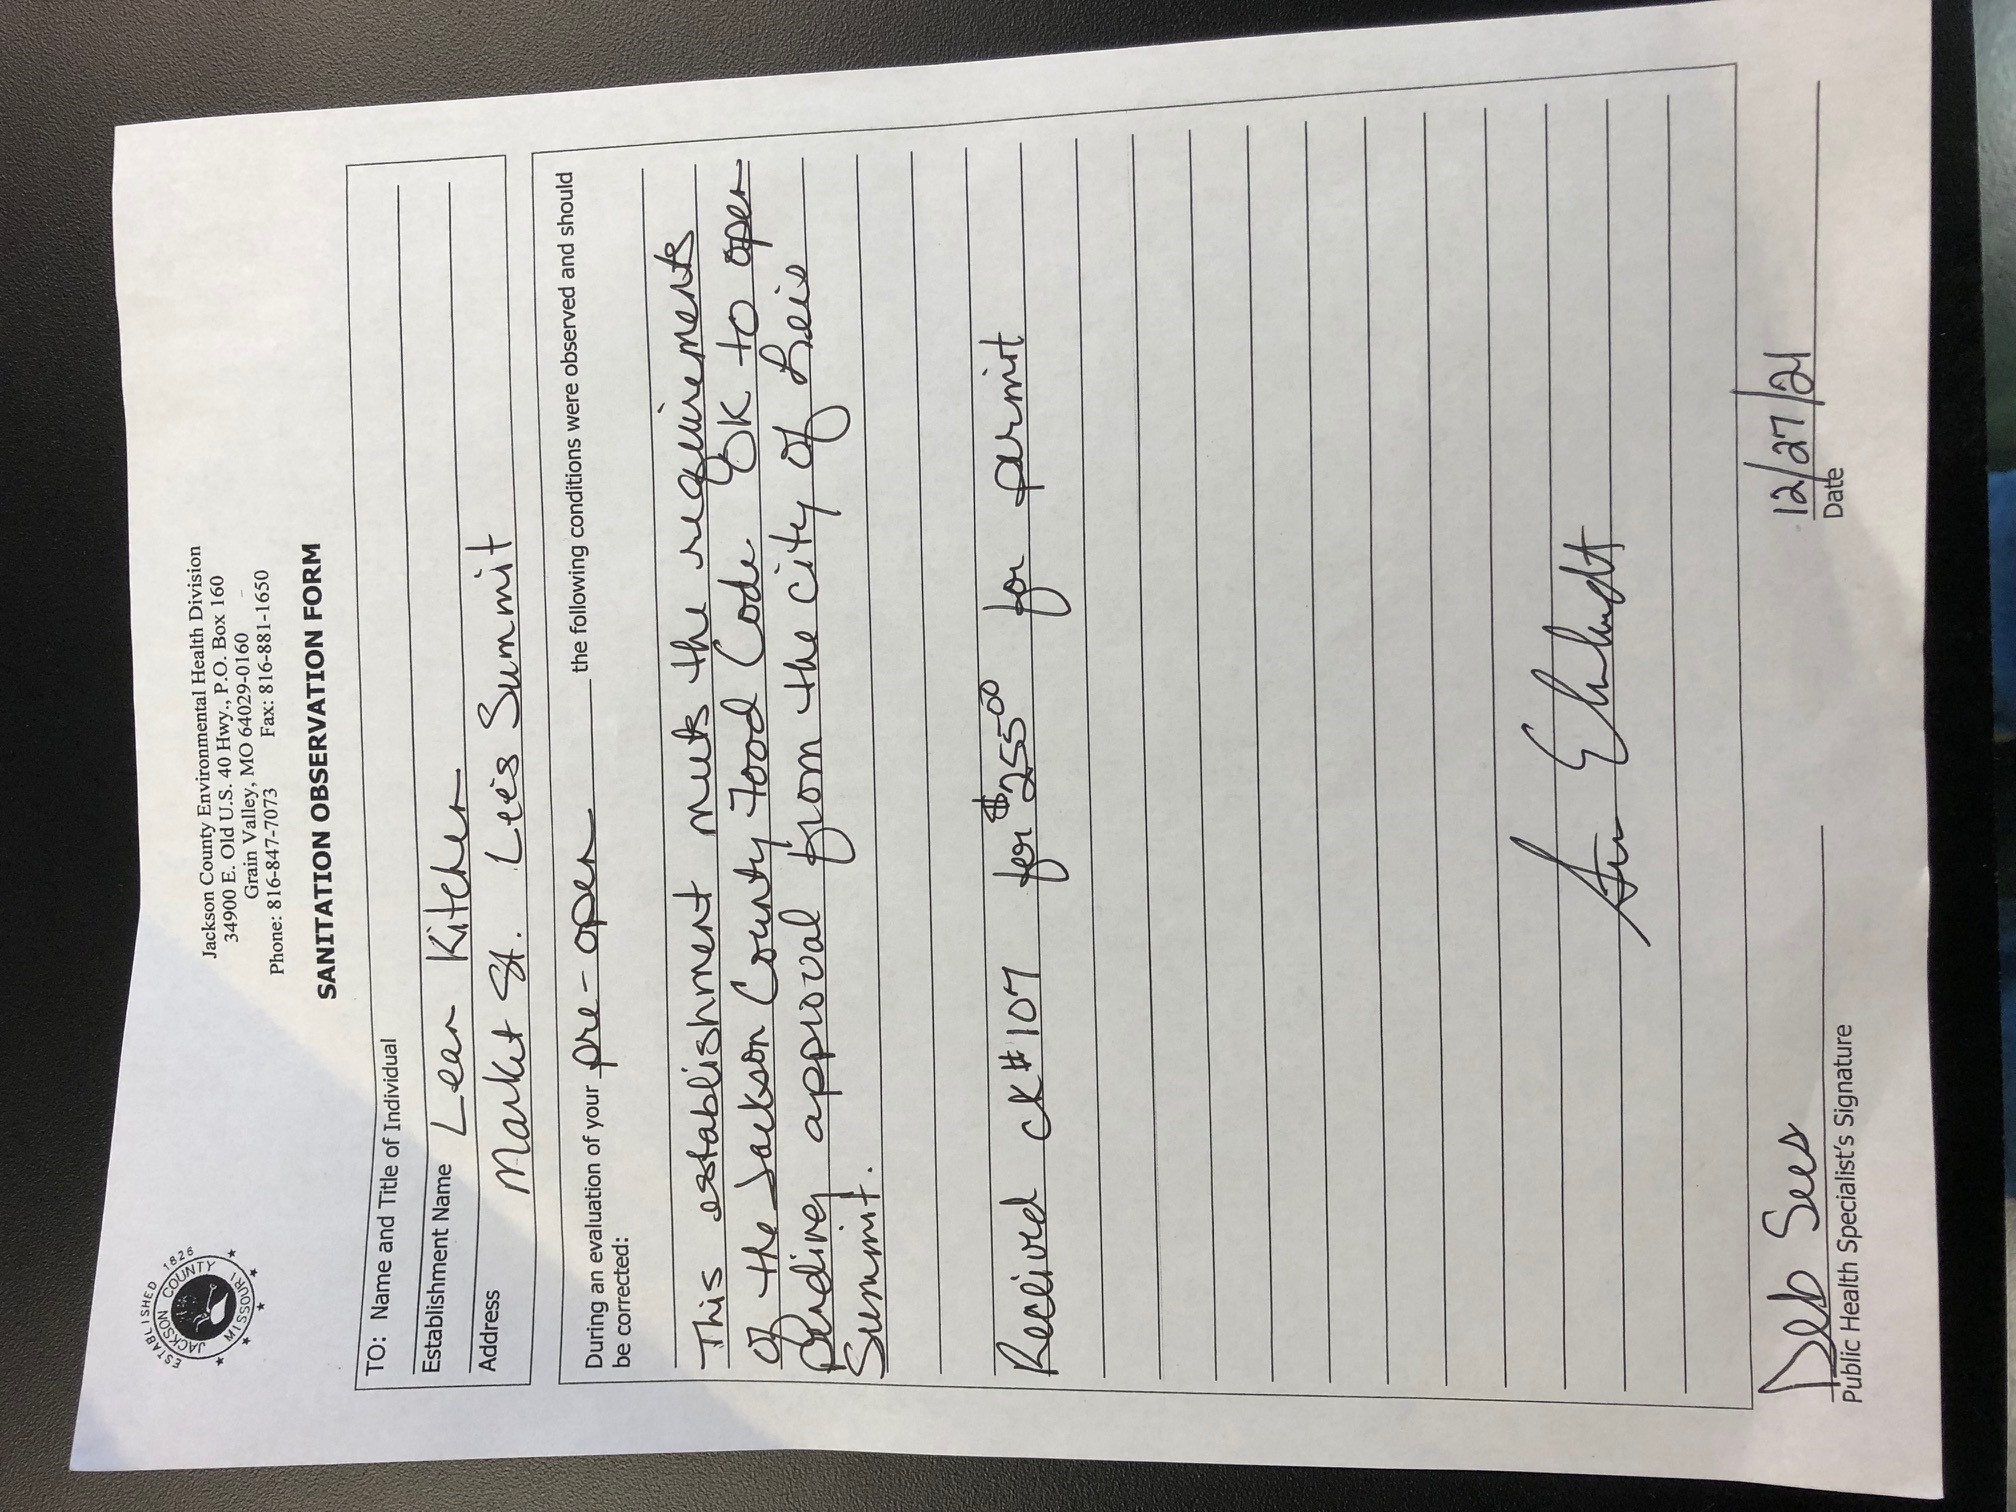 ESTABLISHED 1826
JACKSON COUNTY
MISSOURI
Jackson County Environmental Health Division
34900 E. Old U.S. 40 Hwy., P.O. Box 160
Grain Valley, MO 64029-0160
Phone: 816-847-7073 Fax: 816-881-1650
SANITATION OBSERVATION FORM
TO: Name and Title of Individual
Establishment Name Lean Kitchen
Address Market St. Lee's Summit
During an evaluation of your pre-open the following conditions were observed and should
be corrected:
This establishment meets the requirements
of the Jackson County Food Code. OK to open
pending approval from the city of Lees
Summit.
Received ck#107 for $255.00 for permit
Deb Sees 12/27/21
Public Health Specialist's Signature Date